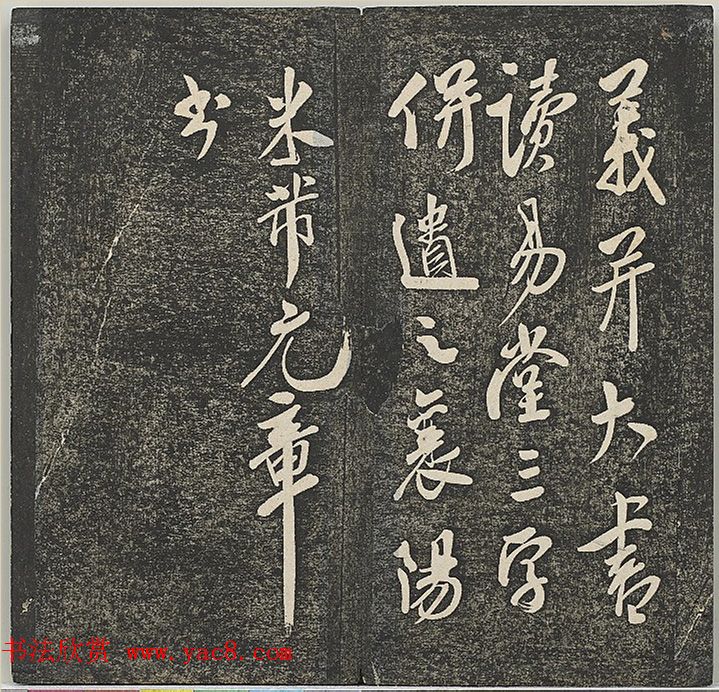 義并大書
讀易堂三字
併遺之襄陽
米芾元章
书
书法欣赏 www.yac8.com